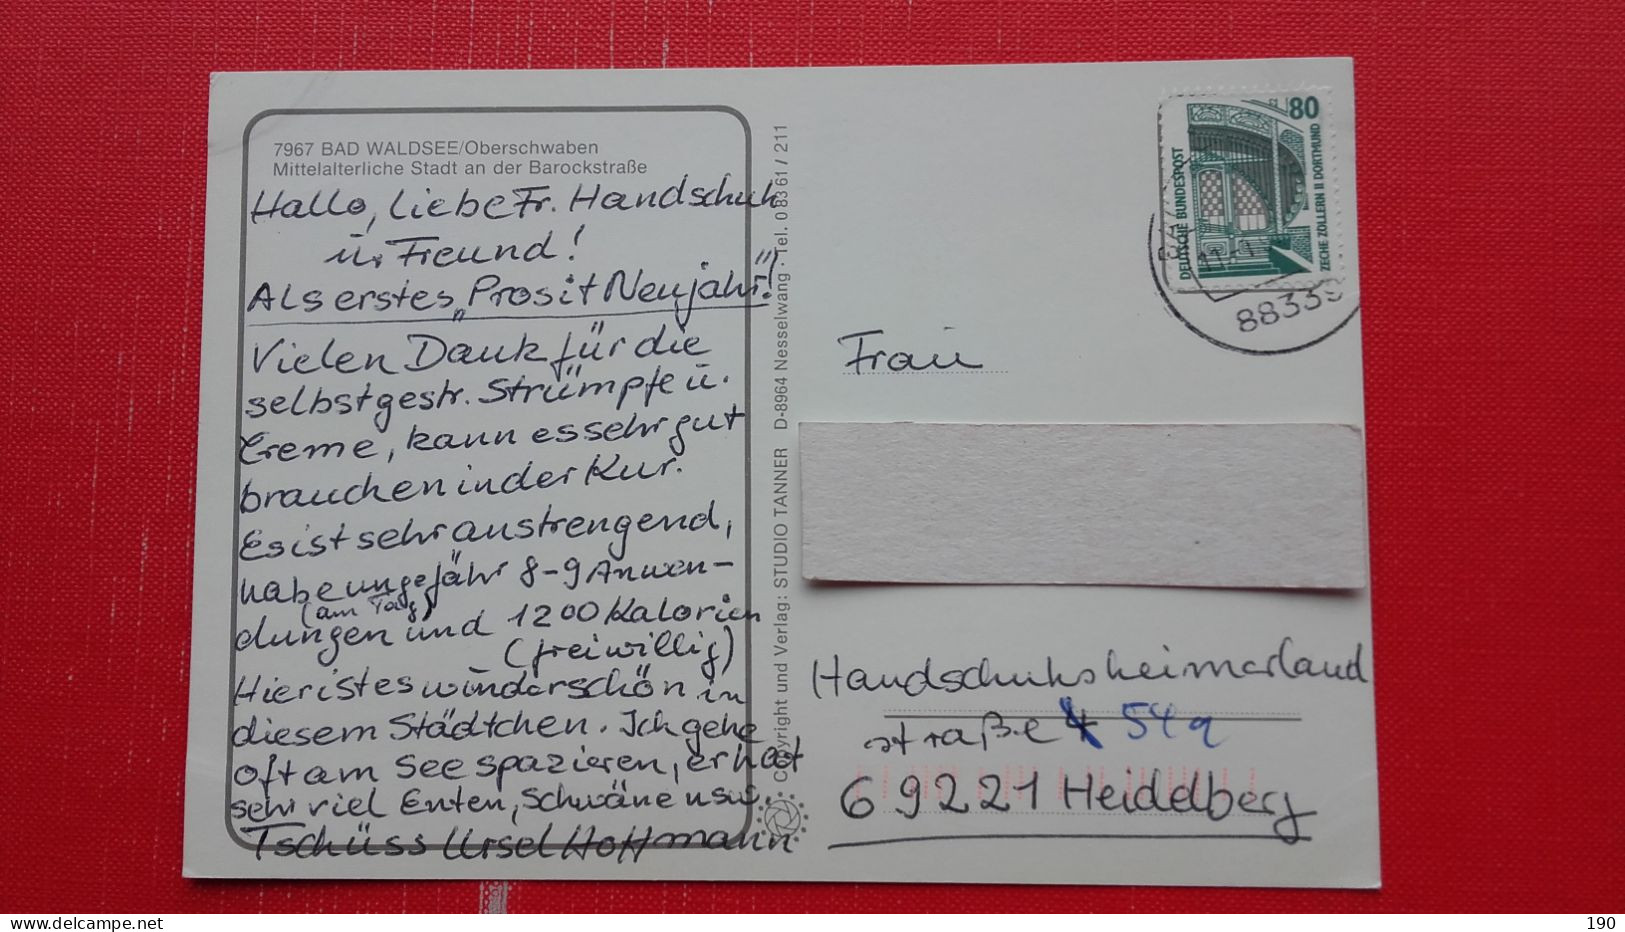 7967 BAD WALDSEE/Oberschwaben
Mittelalterliche Stadt an der Barockstraße
Hallo, liebe Fr. Handschuh
u. Freund!
Als erstes „Prosit Neujahr!"
Vielen Dank für die
selbstgestr. Strümpfe u.
Creme, kann es sehr gut
brauchen in der Kur.
Es ist sehr anstrengend,
habe ungefähr 8-9 Anwen-
(am Tag)
dungen und 1200 Kalorien
(freiwillig)
Hier ist es wunderschön in
diesem Städtchen. Ich gehe
oft am See spazieren, er hat
sehr viel Enten, Schwäne usw.
Tschüss Ursel Hoffmann
Copyright und Verlag: STUDIO TANNER D-8964 Nesselwang · Tel. 08361/211
80
DEUTSCHE BUNDESPOST
ZECHE ZOLLERN II DORTMUND
8833
Frau
Handschuhsheimerland
straße 54a
69221 Heidelberg
delcampe.net
the collector's marketplace
190